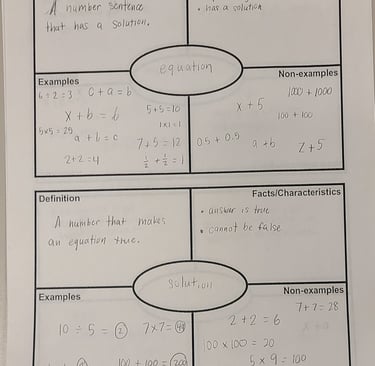 A number sentence
that has a solution.
• has a solution
equation
Examples
6÷2=3 c+a=b
x+b=6
5+5=10
1x1=1
5x5=25
a+b=c
7+5=12
2+2=4
½+½=1
Non-examples
1000+1000
x+5
100+100
0.5+0.5
a+b
z+5
Definition
A number that makes
an equation true.
Facts/Characteristics
• answer is true
• cannot be false
solution
Examples
10÷5=2 7x7=49
100+100=200
Non-examples
7+7=28
2+2=6
100x100=20
5x9=100